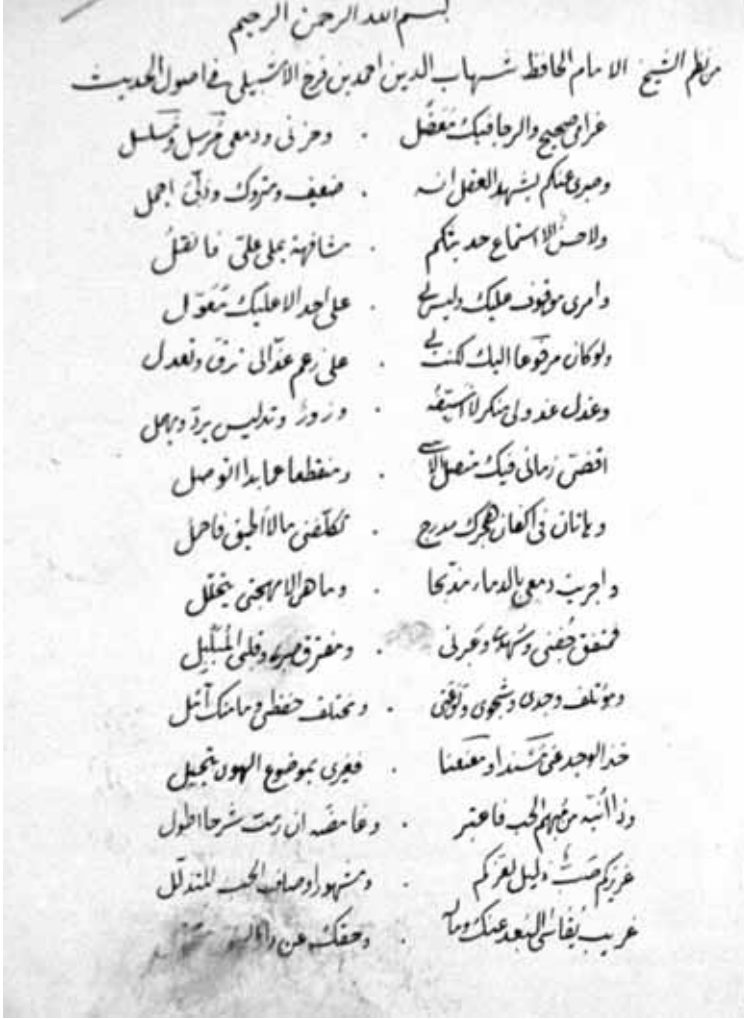 بسم الله الرحمن الرحيم
من نظم الشيخ الامام الحافظ شهاب الدين احمد بن فرح الاشبيلي في اصول الحديث
غرامي صحيح والرجا فيك مُعْضَل . وحزني ودمعي مُرسل ومسلسل
وصبري عنكم يشهد العقل انه . ضعيف ومتروك وذلّي اجمل
ولا حسنٌ الا استماع حديثكم . مشافهة يملى عليّ فانقلُ
وامري موقوف عليك وليس لي . على احد الا عليك مُعَوّل
ولو كان مرفوعا اليك لكنت لي . على رغم عذّالي ترقّ وتعدل
وعذل عذولي منكر لا اسيغه . وزورٌ وتدليس يردّ ويهمل
اقضي زماني فيك متصل الاسى . ومنقطعا عما به اتوصل
وها انا في اكفان هجرك مدرج . تكلّفني ما لا اطيق فاحمل
واجريت دمعي بالدماء مدبّجا . وما هي الا مهجتي يتحلّل
فمتفق جفني وسهدي وعبرتي . ومفترق صبري وقلبي المُبَلْبل
ومؤتلف وجدي وشجوي ولوعتي . ومختلف حظي وما منك آمل
خذ الوجد عني مُسْنداً ومعنعنا . فغيري بموضوع الهوى يتجمل
وذا نُبَذ من مُبهم الحب فاعتبر . وغامضه ان رمت شرحا اطول
عزيزكم صبٌّ ذليل لعزكم . ومشهور اوصاف المحب للتذلّل
غريب يُقاسي البُعد عنك وماله . وحقك عن